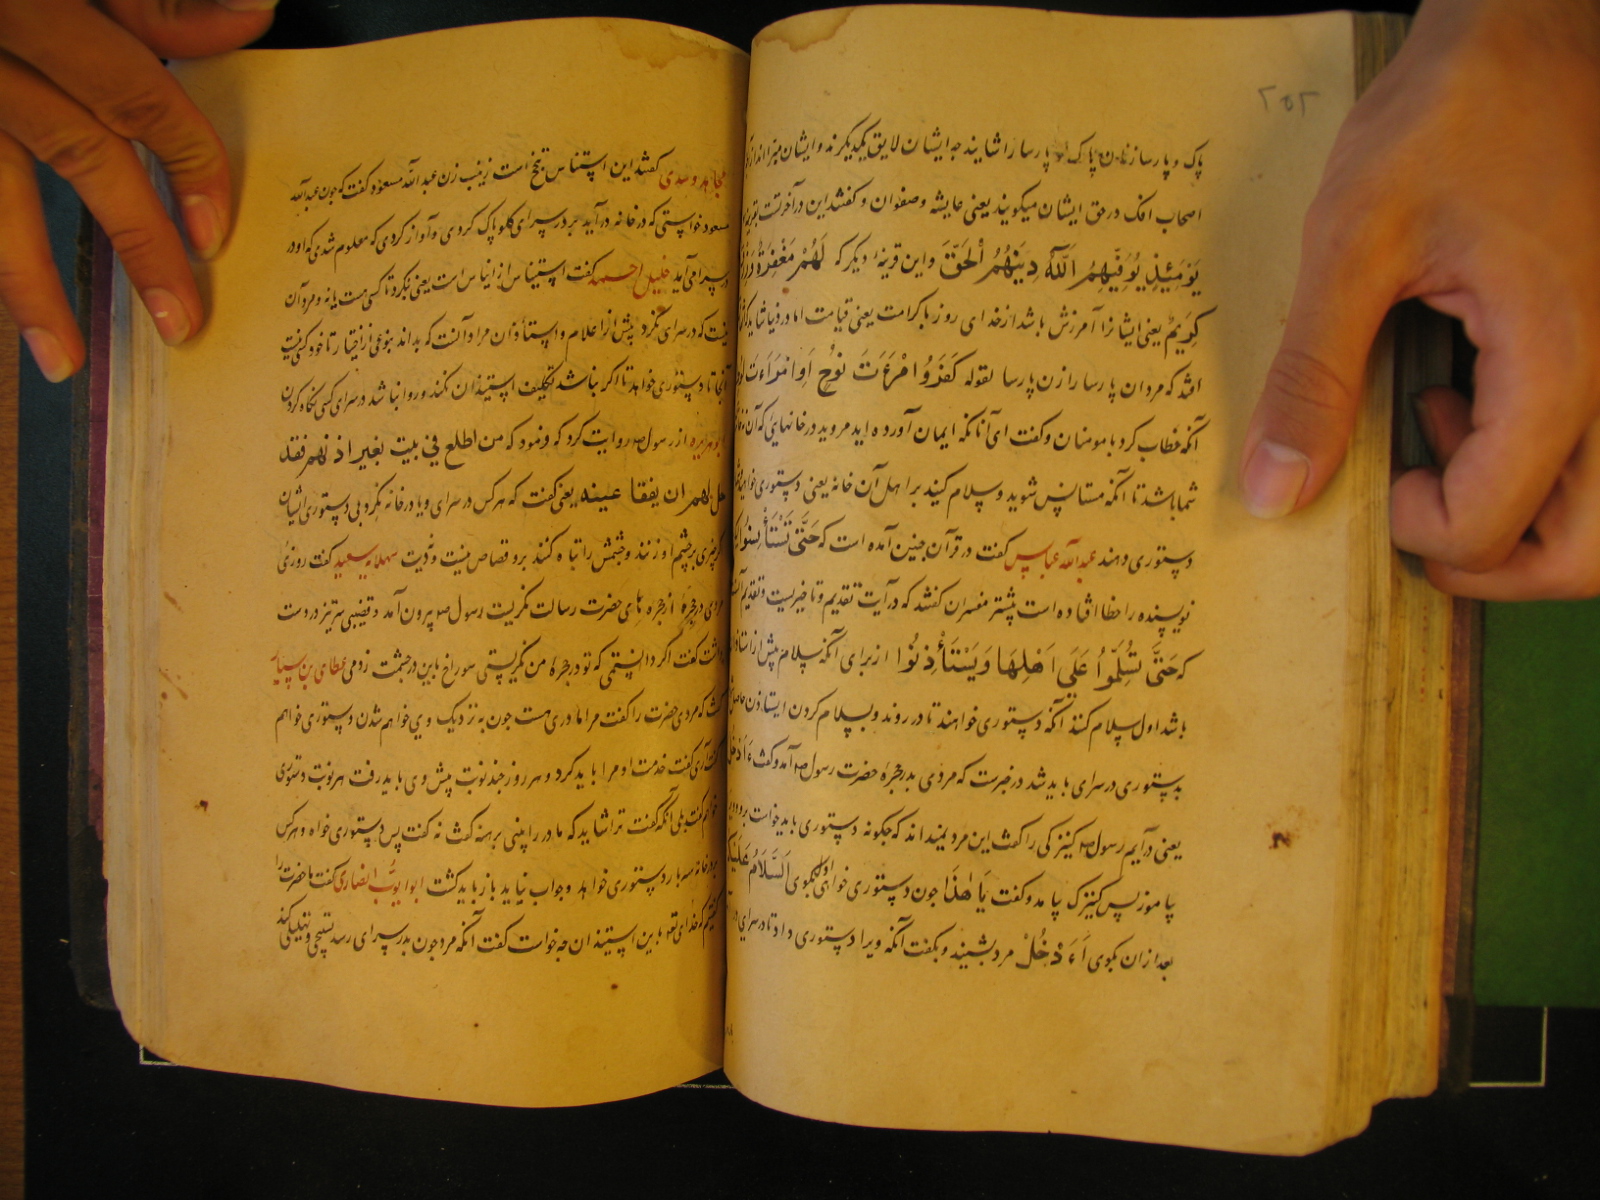 ۲۵۲
پاک و پارسا زنان پاک و پارسا را شایند جه ایشان لایق یکدیکرند و ایشان مبرا اند از آنچه
اصحاب افک در حق ایشان میکویند یعنی عایشه و صفوان و کفتند این در آخرتست
یَوْمَئِذٍ یُوَفِّیهِمُ اللّٰهُ دِینَهُمُ الْحَقَّ و این قرینهٔ دیکر که لَهُمْ مَغْفِرَةٌ وَرِزْقٌ
کَرِیمٌ یعنی ایشانرا آمرزش باشد از خدای و روز با کرامت یعنی قیامت اما در دنیا شاید که
افتد که مردان پارسا را زن پارسا لقوله کَفَرُوا امْرَءَتَ نُوحٍ اَوِ امْرَاَءَتَ
آنکه خطاب کرد با مومنان و کفت ای آنانکه ایمان آورده اید مروید در خانهایی که آن
شما باشد تا آنکه مستانس شوید و سلام کنید بر اهل آن خانه یعنی دستوری خواهید
دستوری دهند عبد الله عباس کفت در قرآن جنین آمده است که حَتَّیٰ تَسْتَأْنِسُوا
نویسنده را خطا افتاده است پیشتر مفسران کفتند که در آیت تقدیم و تاخیریست و تقدیم
که حَتَّی تُسَلِّمُوا عَلَی اَهْلِهَا وَ یَسْتَأْذِنُوا از برای آنکه سلام پیش از
باشد اول سلام کنند آنکه دستوری خواهند تا در روند و بسلام کردن ایستاذن حاصل
بدستوری در سرای باید شد در خبرست که مردی بدر حجرهٔ حضرت رسول ص آمد و کفت ءَاَدْخُلُ
یعنی درآیم رسول ص کنیزکی را کفت این مرد نمیداند که جکونه دستوری باید خواست برو و ویرا
بیاموز پس کنیزک بیامد و کفت یَا هٰذَا جون دستوری خواهی اول بکوی اَلسَّلَامُ عَلَیْکُمْ
بعد از ان بکوی اَءَدْخُلُ مرد بشنید و بکفت آنکه ویرا دستوری داد تا در سرای
مجاهد و سدی کفتند این استیناس تنحنح است زینب زن عبد الله مسعود کفت که جون عبدالله
مسعود خواستی که در خانه درآید بر در سرای کلو پاک کردی و آواز کردی که معلوم شدی که او در
سرا می آید خلیل احمد کفت استیناس از ایناس است یعنی نکرد تا کسی هست یا نه و مرد آن
نیست که در سرای نکرد پیش از اعلام و استأذان مراد آنست که بداند بنوعی از اختبار تا خود کسی نیست
آنجا تا دستوری خواهد تا اکر نباشد تکلیف استیذان نکند و روا نباشد در سرای کسی نکاه کردن
ابو هریره از رسول ص روایت کرد که فرمود که من اطلع فی بیت بغیر اذنهم فقد
حل لهم ان یفقا عینه یعنی کفت که هر کس در سرای و یا در خانه نکرد بی دستوری ایشان
کر چیزی بر چشم او زنند و چشمش را تباه کنند برو قصاص نیست و دیت سهل سعید کفت روزی
مردی در حجرهٔ از حجره های حضرت رسالت نکریست رسول ص بیرون آمد و قضیبی سرتیز در دست
داشت کفت اکر دانستمی که تو در حجرهٔ من نکریستی سوراخ باین در جشمت زدمی عطای بن سیار
کفت که مردی حضرت را کفت مرا مادری هست جون به نزدیک وی خواهم شدن دستوری خواهم
کفت آری کفت خدمت او مرا باید کرد و هر روز جند نوبت پیش وی باید رفت هر نوبت دستوری
خواهم کفت بلی آنکه کفت ترا شاید که مادر را بینی برهنه کفت نه کفت پس دستوری خواه و هر کس
بر در خانه سه بار دستوری خواهد و جواب نیاید باز باید کشت ابو ایوب انصاری کفت ما حضرت را
کفتیم که خدای تعه باین استیذان جه خواست کفت آنکه مرد جون بدر سرای رسد تسبیحی و تهلیلی کند